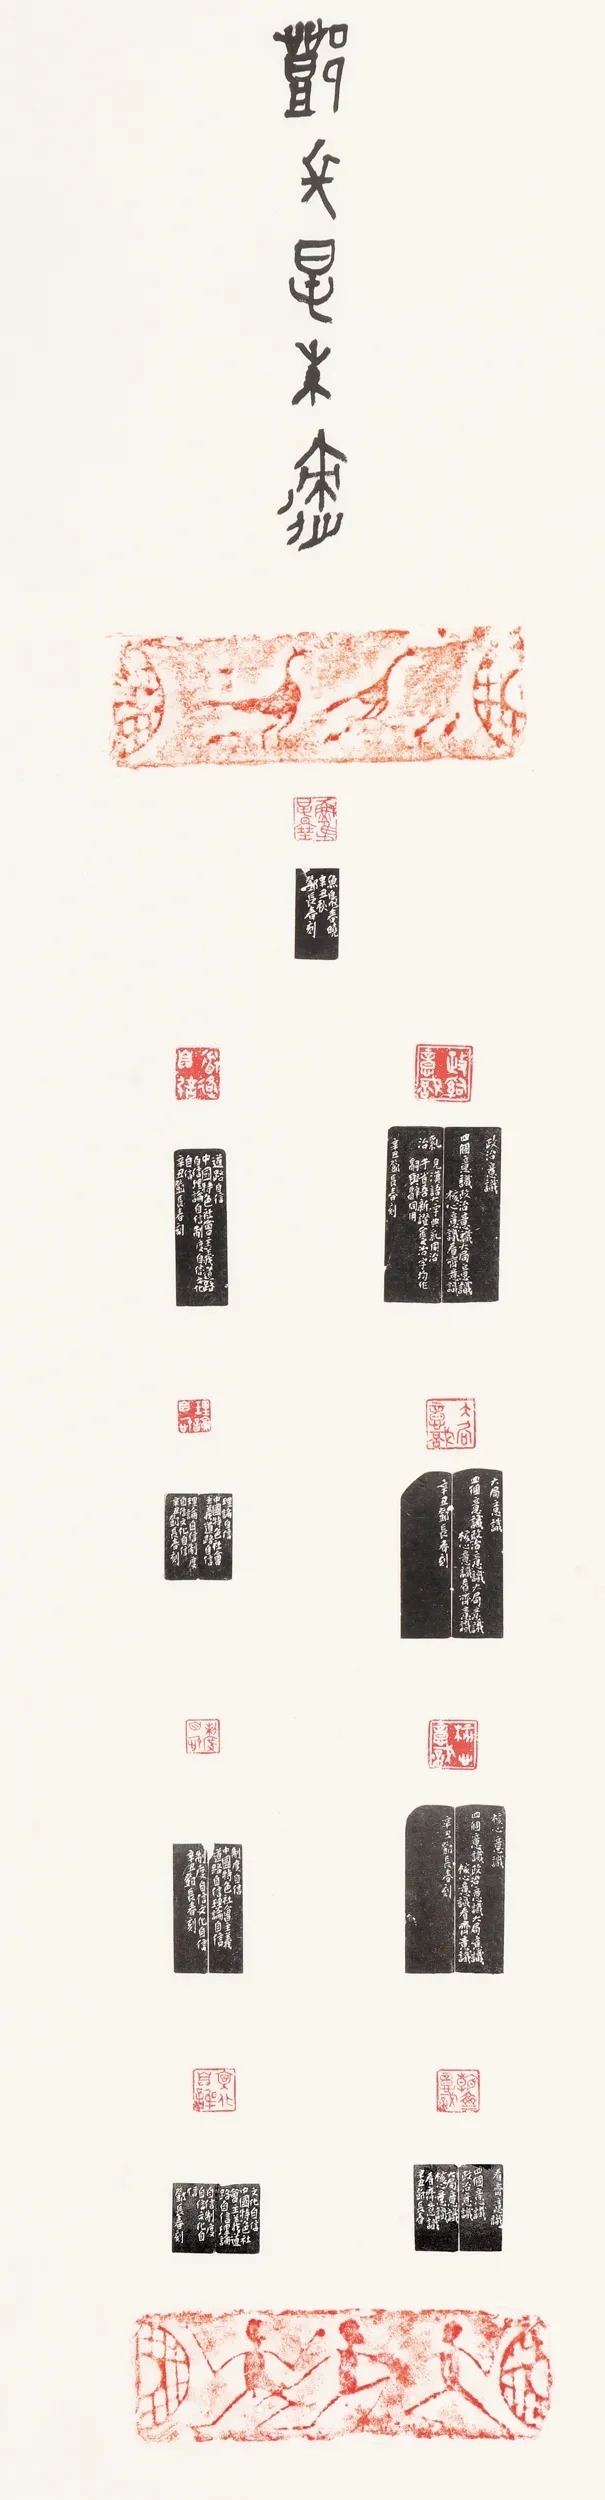 鄧氏是未齋
魚鳧春曉
辛丑秋
鄧長春刻
政治意識
政治意識
四個意識政治意識大局意識
核心意識看齊意識
辛丑鄧長春刻
道路自信
道路自信
中國特色社會主義道路
自信理論自信制度自信文化
自信
辛丑鄧長春刻
大局意識
大局意識
四個意識政治意識大局意識
核心意識看齊意識
辛丑鄧長春刻
理論自信
理論自信
中國特色社會
主義道路自信
理論自信制度
自信文化自信
辛丑鄧長春刻
核心意識
核心意識
四個意識政治意識大局意識
核心意識看齊意識
辛丑鄧長春刻
制度自信
制度自信
中國特色社會主義
道路自信理論自信
制度自信文化自信
辛丑鄧長春刻
看齊意識
四個意識
政治意識
大局意識
核心意識
看齊意識
辛丑鄧長春
文化自信
文化自信
中國特色社
會主義道
路自信理論
自信制度
自信文化自
信
鄧長春刻